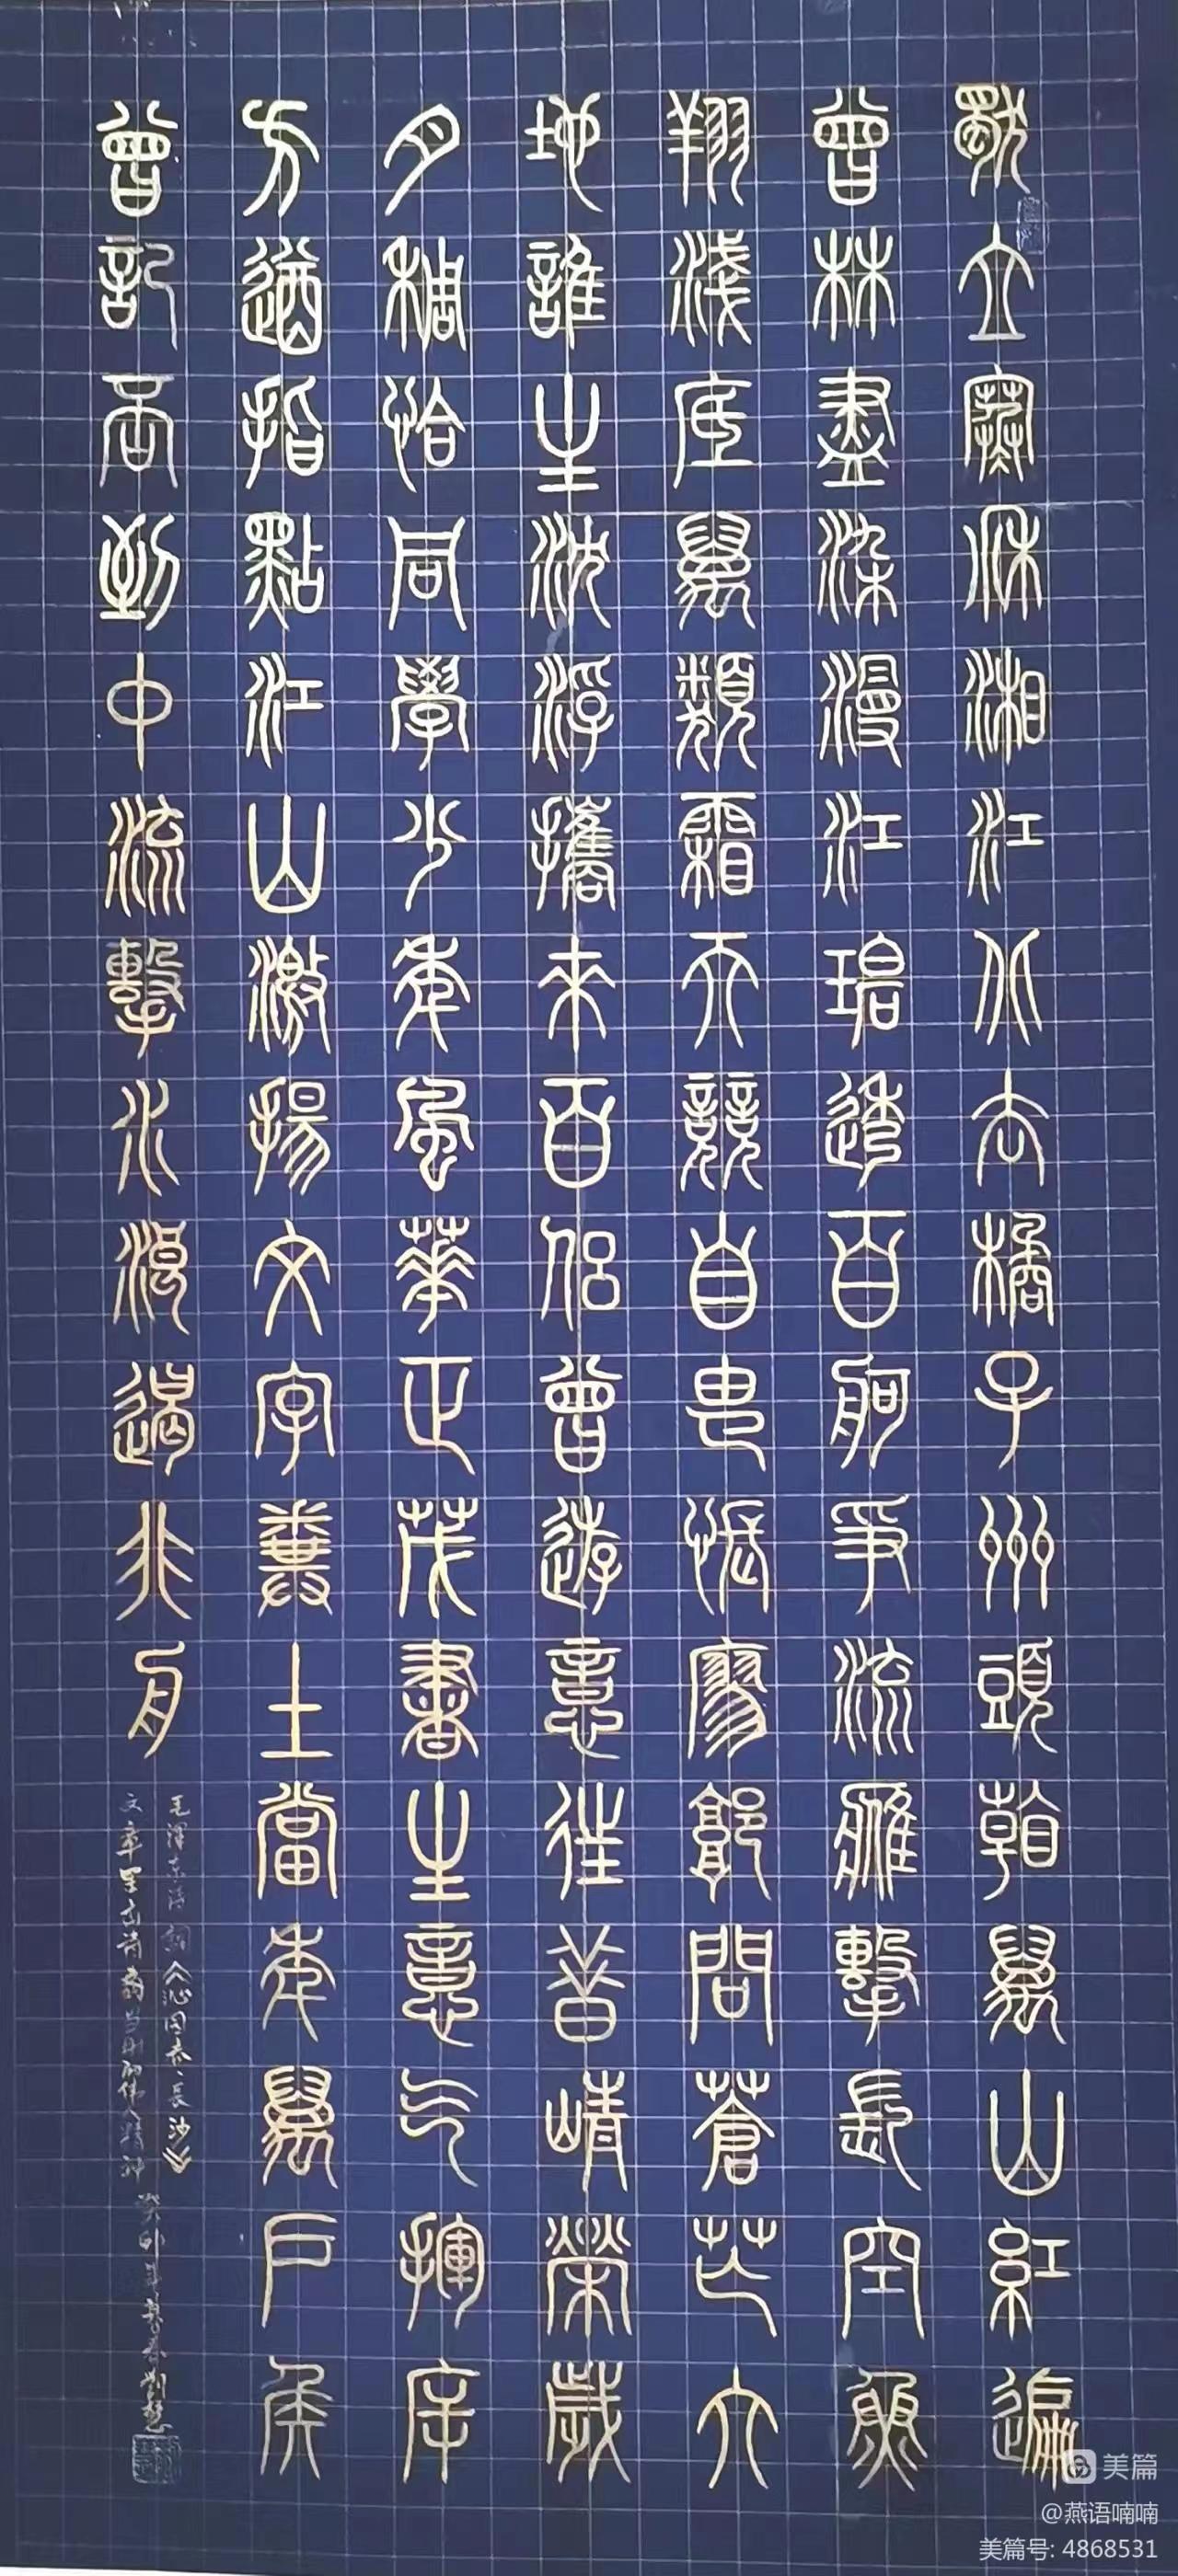 獨立寒秋湘江北去橘子州頭看萬山紅遍
曾林盡染漫江碧透百舸爭流鷹擊長空魚
翔淺底萬類霜天競自由悵廖廓問蒼茫大
地誰主沈浮攜來百侶曾遊意往昔崝榮歲
月稠恰同學少年風華正茂書生意气揮斥
方遒指點江山激揚文字糞土當年萬戶侯
曾記否到中流擊水浪遏飛舟
毛澤東詩詞《沁園春·長沙》
文章 癸卯年
美篇
@燕语喃喃
美篇号: 4868531